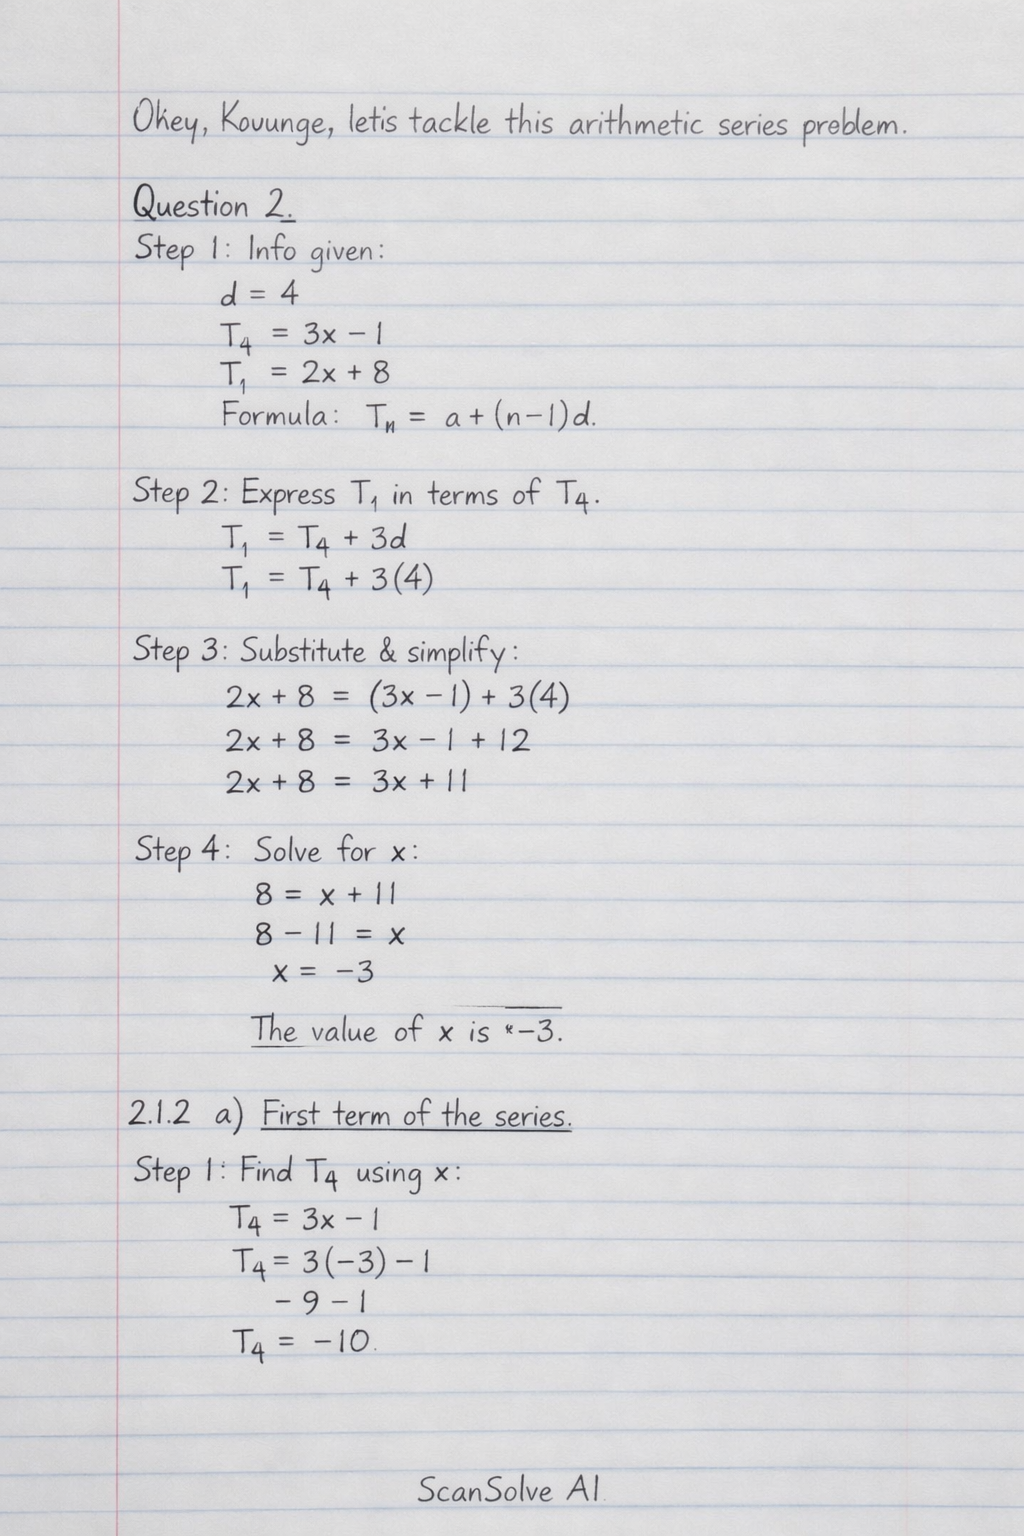 Okey, Kouunge, letis tackle this arithmetic series problem.
Question 2.
Step 1: Info given:
d = 4
T₄ = 3x − 1
T₁ = 2x + 8
Formula: Tₙ = a + (n−1)d.
Step 2: Express T₁ in terms of T₄.
T₁ = T₄ + 3d
T₁ = T₄ + 3(4)
Step 3: Substitute & simplify:
2x + 8 = (3x − 1) + 3(4)
2x + 8 = 3x − 1 + 12
2x + 8 = 3x + 11
Step 4: Solve for x:
8 = x + 11
8 − 11 = x
x = −3
The value of x is ˣ−3.
2.1.2 a) First term of the series.
Step 1: Find T₄ using x:
T₄ = 3x − 1
T₄ = 3(−3) − 1
− 9 − 1
T₄ = −10.
ScanSolve AI